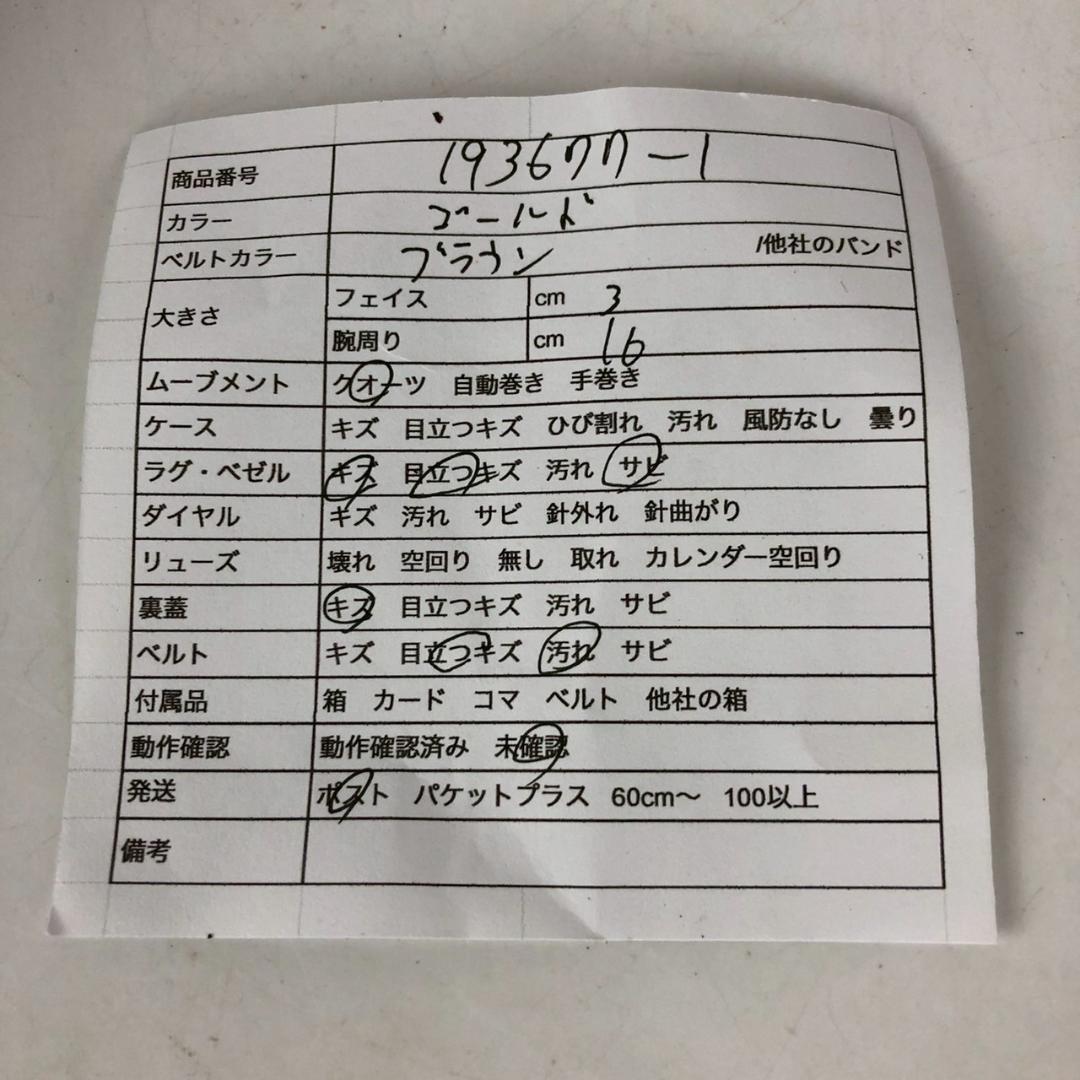 商品番号 193677-1
カラー ゴールド
ベルトカラー ブラウン /他社のバンド
大きさ フェイス cm 3
腕周り cm 16
ムーブメント クオーツ 自動巻き 手巻き
ケース キズ 目立つキズ ひび割れ 汚れ 風防なし 曇り
ラグ・ベゼル キズ 目立つキズ 汚れ サビ
ダイヤル キズ 汚れ サビ 針外れ 針曲がり
リューズ 壊れ 空回り 無し 取れ カレンダー空回り
裏蓋 キズ 目立つキズ 汚れ サビ
ベルト キズ 目立つキズ 汚れ サビ
付属品 箱 カード コマ ベルト 他社の箱
動作確認 動作確認済み 未確認
発送 ポスト パケットプラス 60cm〜 100以上
備考